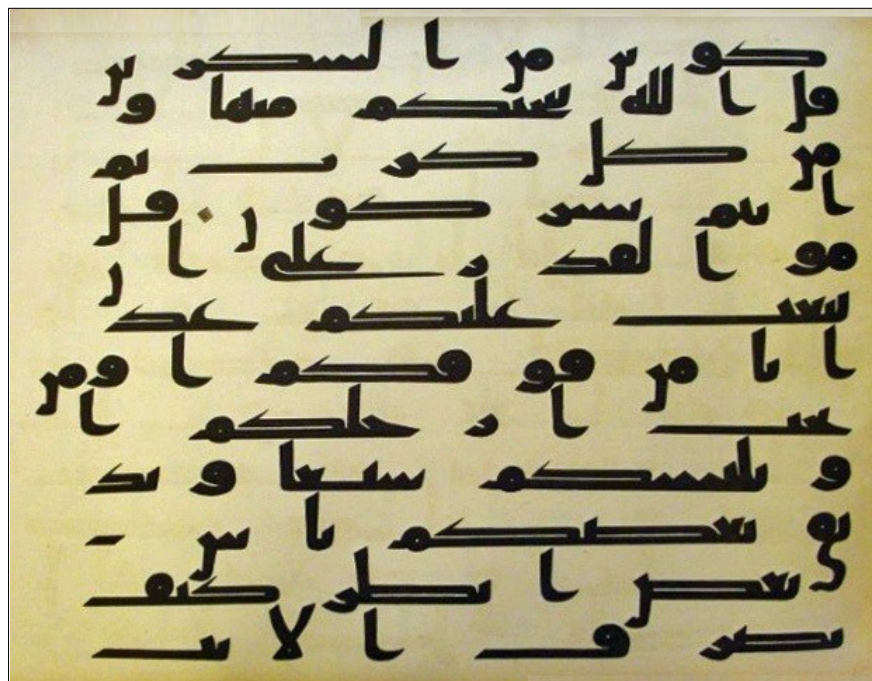 كونن من الشكرين
قل الله ينجيكم منها و
من كل كرب ثم
انتم تشركون قل
هو القدر على ان
يبعث عليكم عذ
ابا من فوقكم او من
تحت ارجلكم ا
و يلبسكم شيعا ويذ
يق بعضكم باس
بعض انظر كيف
نصرف الايت